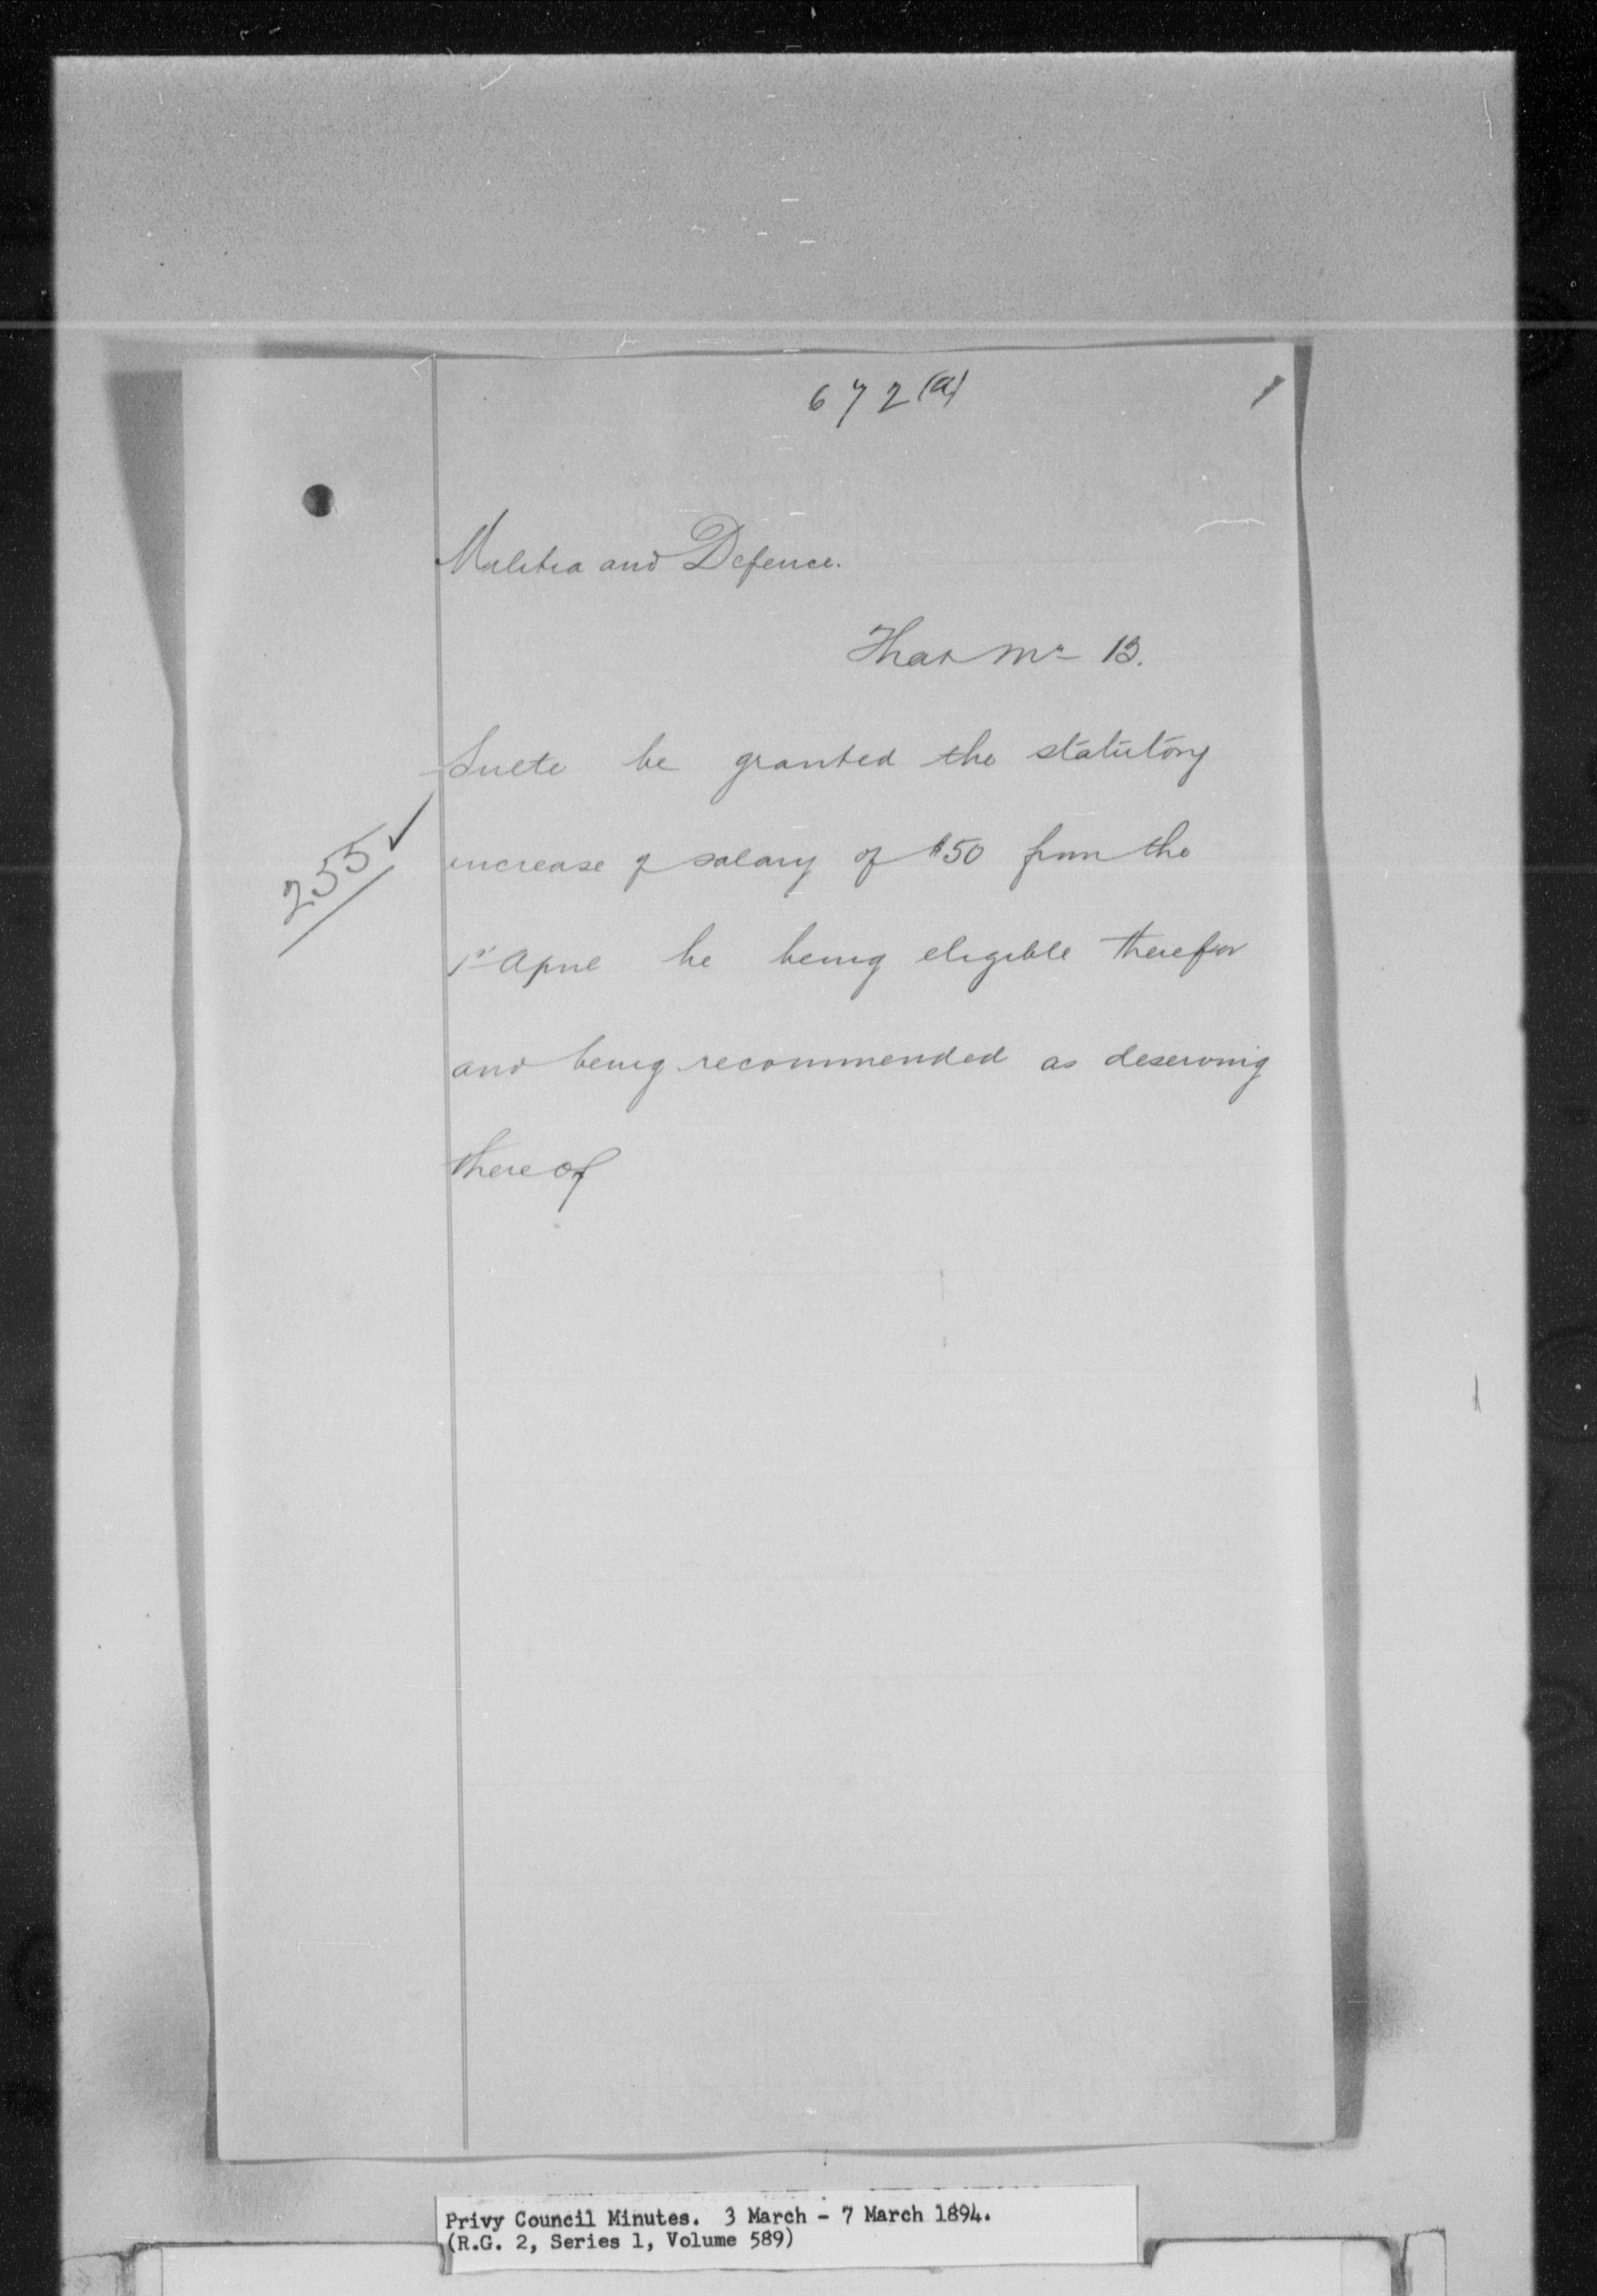 672(a)
Militia and Defence.
That Mr B.
Sulte be granted the statutory
increase of salary of $50 from the
1st April he being eligible therefor
and being recommended as deserving
thereof
255
Privy Council Minutes. 3 March - 7 March 1894.
(R.G. 2, Series 1, Volume 589)